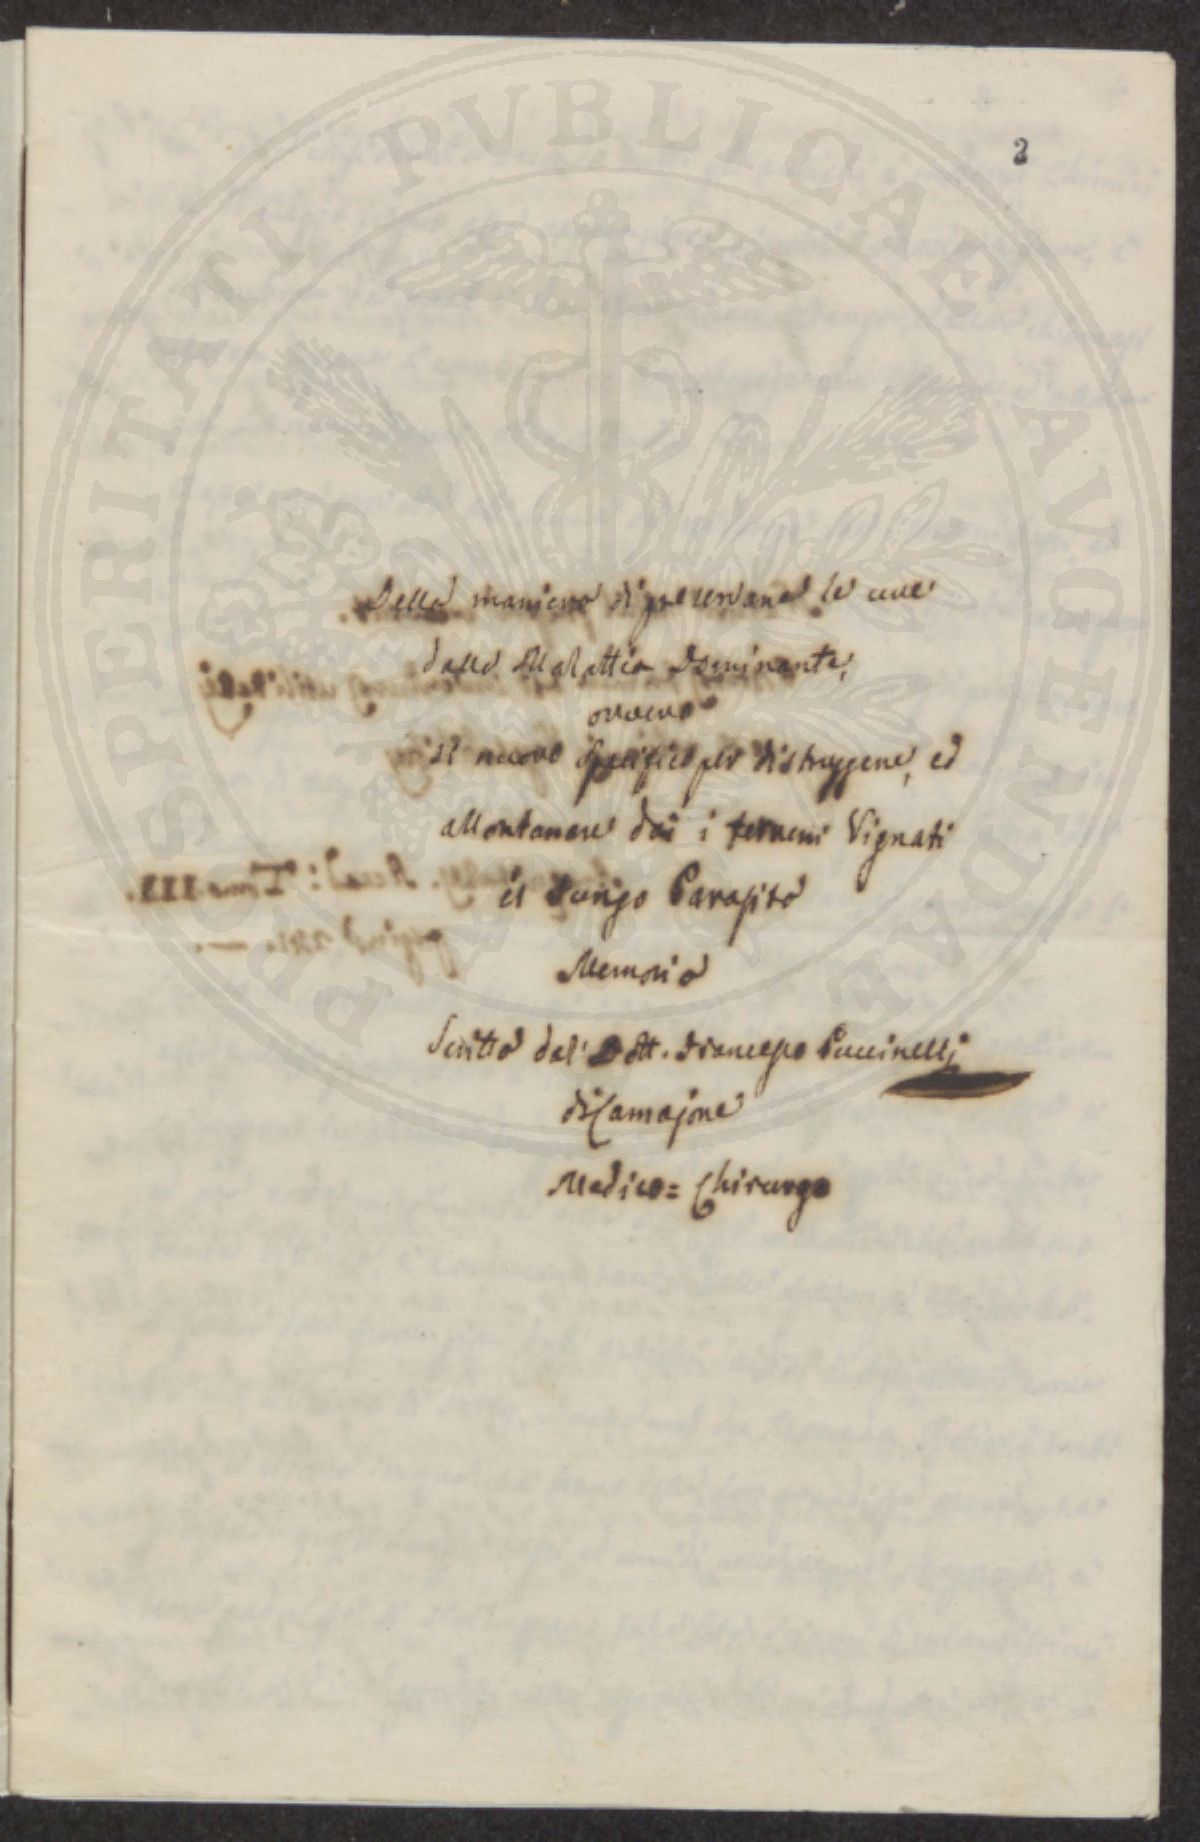 2
Della maniera di preservare le uve
dalla Malattia Dominante,
ovvero
il nuovo Specifico per distruggere, ed
allontanare dai i terreni Vignati
il Fungo Parasito
Memoria
Scritta dal Dott. Francesco Puccinelli
di Camajore
Medico = Chirurgo
PROSPERITATI PUBLICAE AVGENDAE